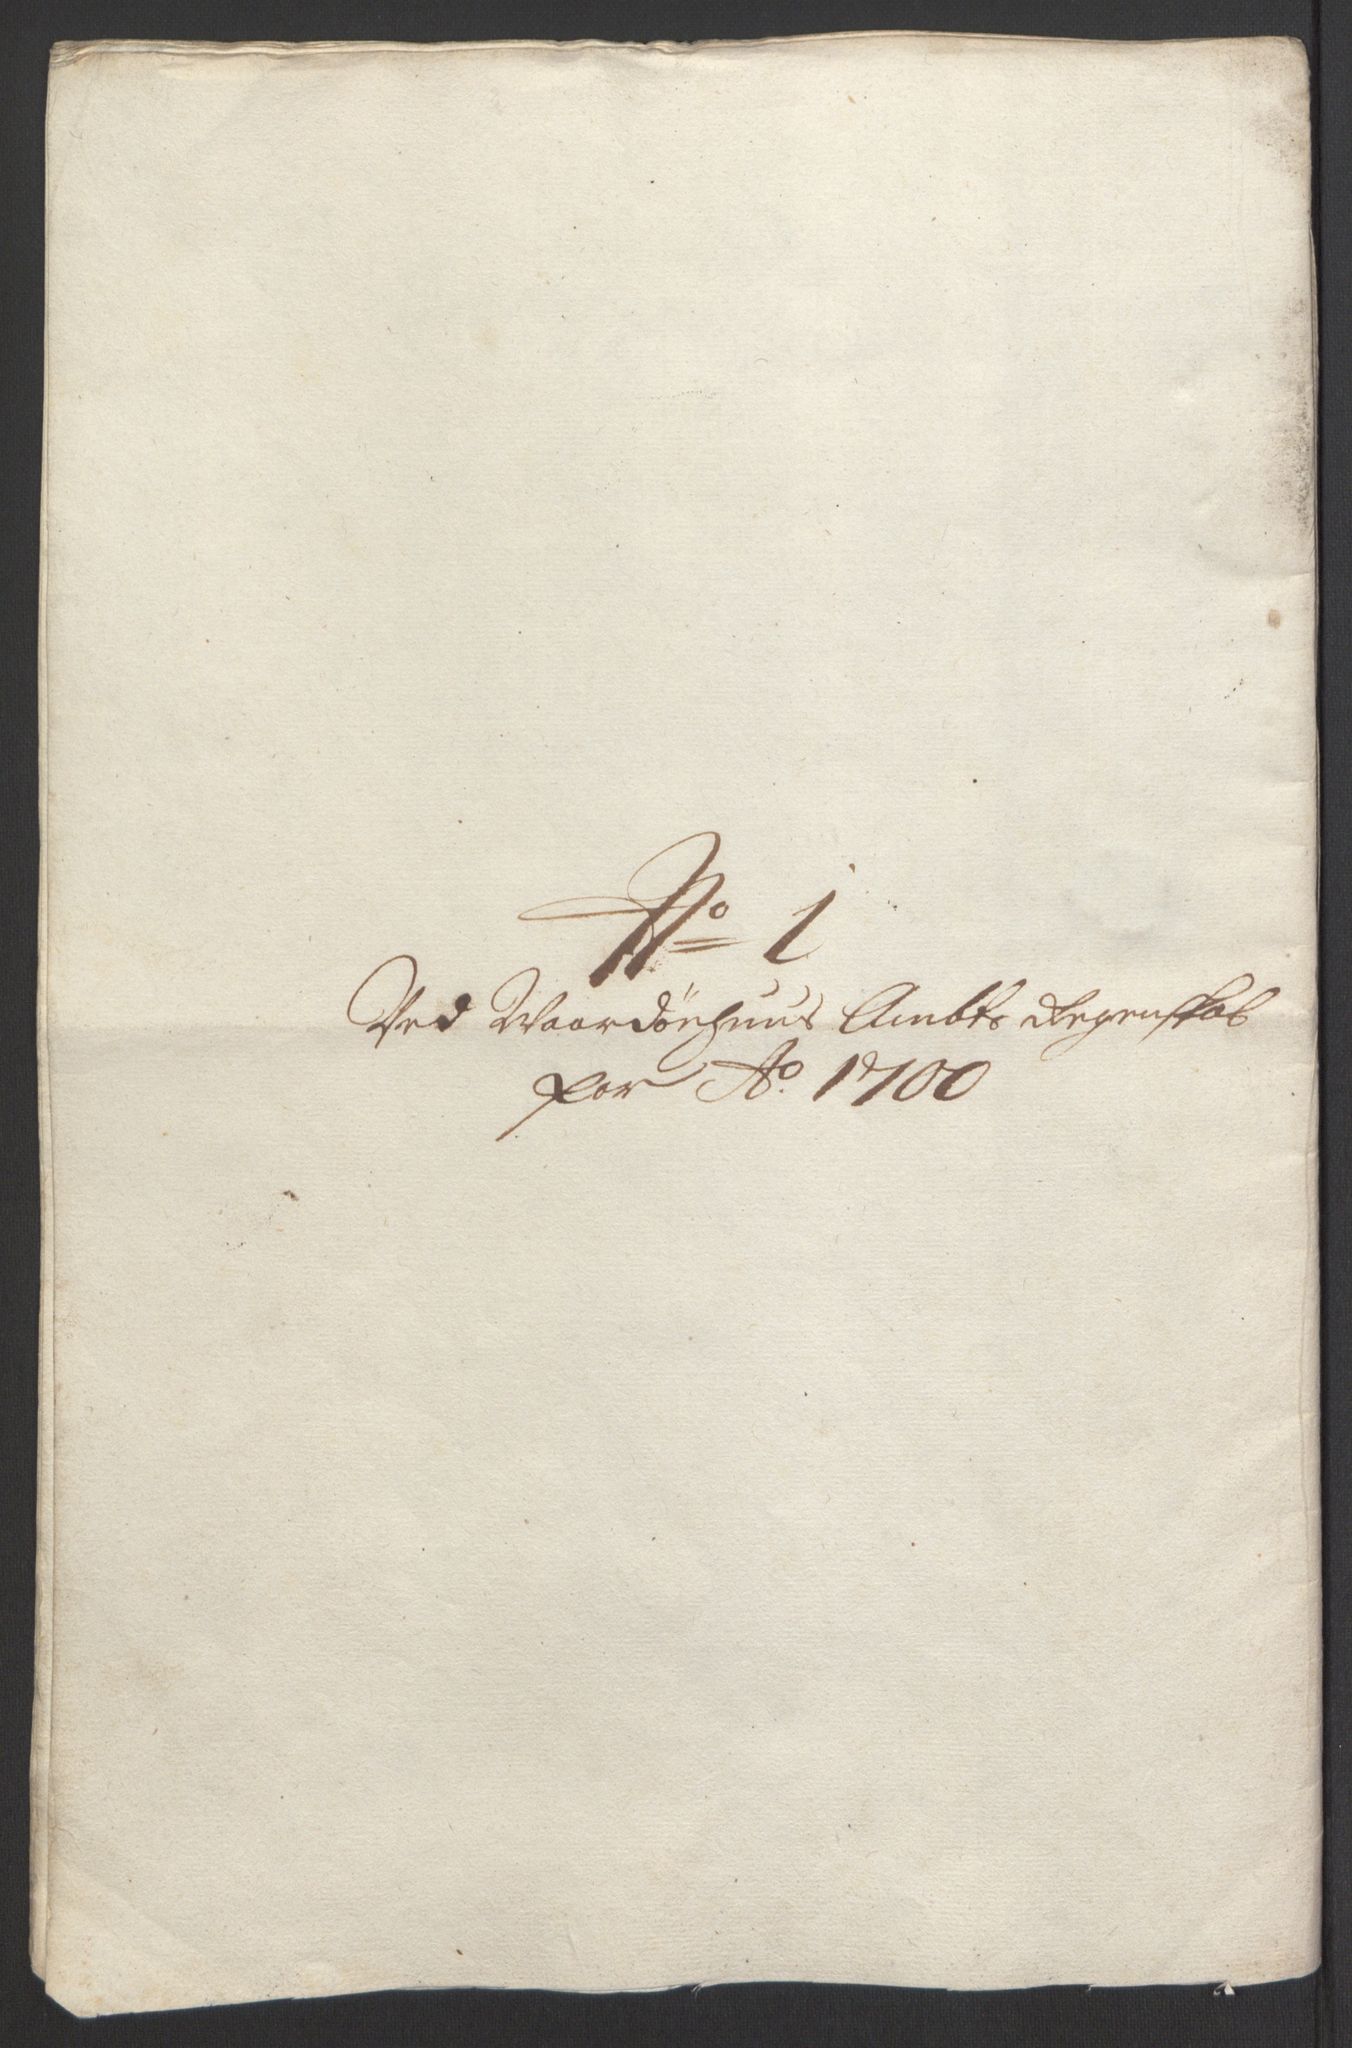 No 1
Ved Waardöehuus Ambts Regenskab
for Ao. 1700